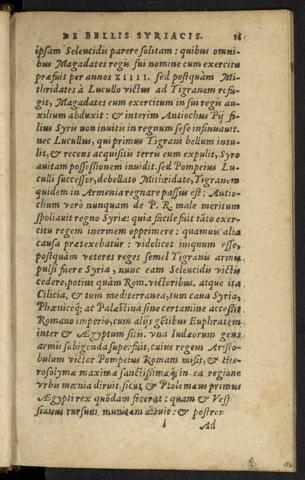 DE BELLIS SYRIACIS. 16
ipsam Seleucidis parere solitam: quibus omni-
bus Magadates regis sui nomine cum exercitu
præfuit per annos XIIII. sed postquàm Mi-
thridates à Lucullo victus ad Tigranem refu-
git, Magadates eum exercitum in sui regis au-
xilium abduxit: & interim Antiochus Pij fi-
lius Syris non inuitis in regnum sese insinuauit.
nec Lucullus, qui primus Tigrani bellum intu-
lit, & recens acquisitis terris eum expulit, Syro
auitam possessionem inuidit. sed Pompeius Lu-
culli successor, debellato Mithridate, Tigranem
quidem in Armenia regnare passus est: Antio-
chum verò nunquam de P. R. male meritum
spoliauit regno Syriæ: quia facile fuit tāto exer-
citu regem inermem opprimere: quamuis alia
causa prætexebatur: videlicet iniquum esse,
postquàm veteres reges semel Tigranis armis
pulsi fuere Syria, nunc eam Seleucidis victis
cedere, potius quàm Rom. victoribus. atque ita
Cilicia, & tum mediterranea, tum caua Syria,
Phœniceq́; ac Palæstina sine certamine accessit
Romano imperio, cum alijs gētibus Euphraten
inter & Ægyptum sitis. vna Iudæorum gens
armis subigenda superfuit, cuius regem Aristo-
bulum victor Pompeius Romam misit, & Hie-
rosolyma maxima sanctissimaq́; in ea regione
vrbis mœnia diruit. sicut & Ptolemæus primus
Ægypti rex quōdam fecerat: quam & Vesp
sianus rursum munitam diruit: & postren
i Ad